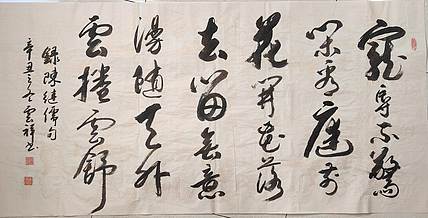 寵辱不驚
閑看庭前
花開花落
去留無意
漫随天外
雲捲雲舒
錄陳继儒句
辛丑之冬雲祥书